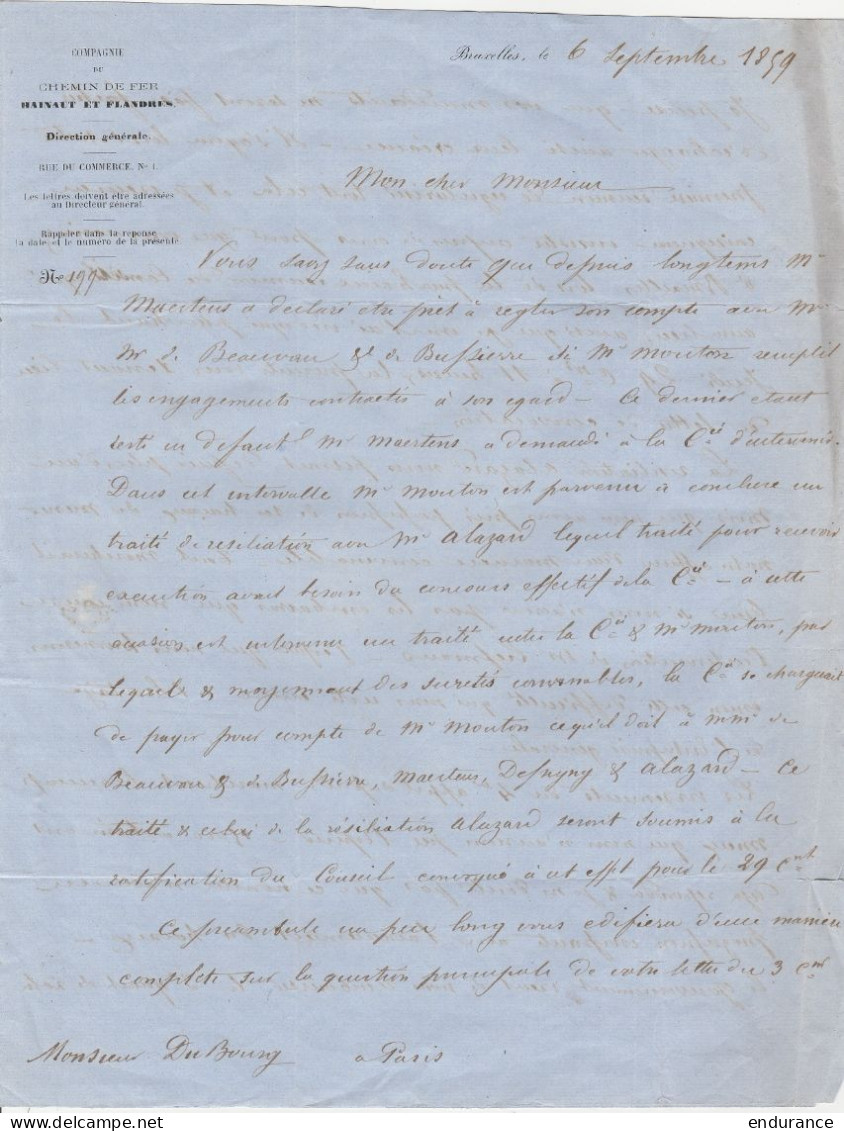 COMPAGNIE
DU
CHEMIN DE FER
HAINAUT ET FLANDRES.
Direction générale.
RUE DU COMMERCE, No 1.
Les lettres doivent être adressées
au Directeur général.
Rappeler dans la réponse
la date et le numéro de la présente.
No 199
Bruxelles, le 6 Septembre 1859
Mon cher Monsieur
Vous savez sans doute que depuis longtems Mr
Maertens a declaré etre prêt à regler son compte avec Mr
Mr de Beauvau & de Bussierre si Mr Mouton remplit
les engagements contractés à son egard — Ce dernier etant
resté en defaut Mr Maertens a demandé à la Cie d'intervenir.
Dans cet intervalle Mr Mouton est parvenu à conclure un
traité de resiliation avec Mr Alazard lequel traité pour recevoir
execution avait besoin du concours effectif de la Cie — à cette
occasion est intervenu un traité entre la Cie & Mr Mouton, par
lequel & moyennant des suretés convenables, la Cie se chargeait
de payer pour compte de Mr Mouton ce qu'il doit à MM. de
Beauvau & de Bussierre, Maertens, & Alazard — Ce
traité & celui de la résiliation Alazard seront soumis à la
ratification du Conseil convoqué à cet effet pour le 29 Ct
Ce preambule un peu long vous edifiera d'une maniere
complete sur la question principale de votre lettre du 3 Ct
Monsieur DuBourg a Paris
delcampe.net
endurance